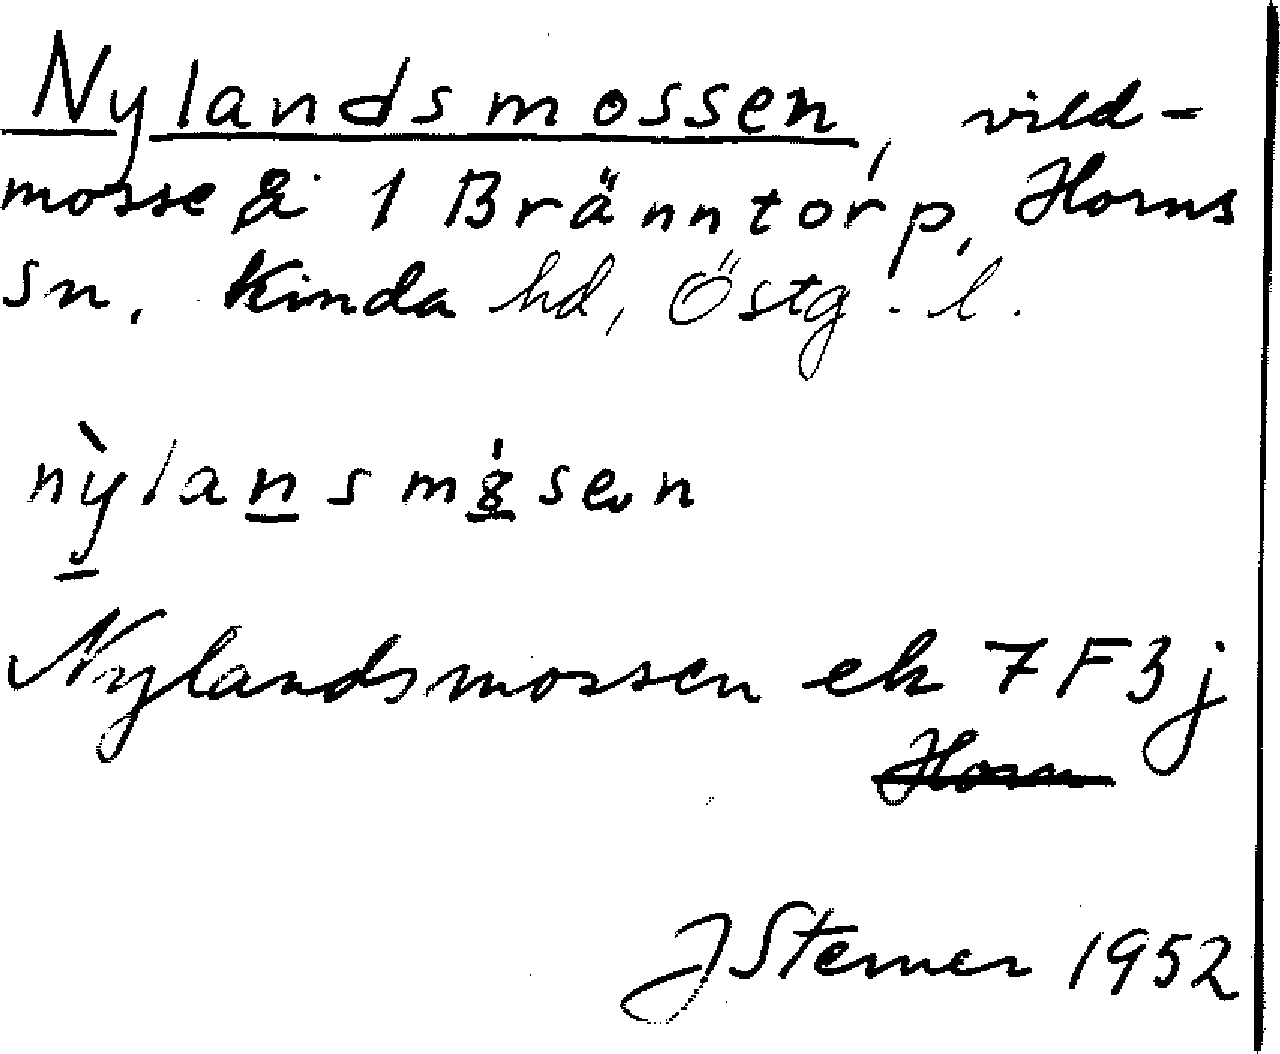 Nylandsmossen, vild-
mosse å 1 Bränntorp, Horns
sn, Kinda hd, Östg. l.
nỳlansm sen
Nylandsmossen ek 7F3j
Horn
J Sterner 1952